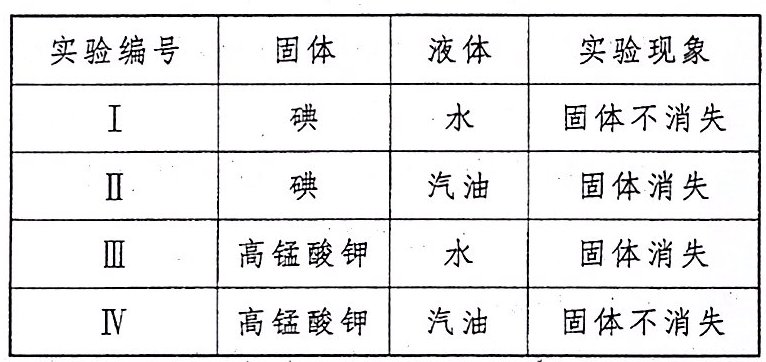 实验编号 固体 液体 实验现象
Ⅰ 碘 水 固体不消失
Ⅱ 碘 汽油 固体消失
Ⅲ 高锰酸钾 水 固体消失
Ⅳ 高锰酸钾 汽油 固体不消失